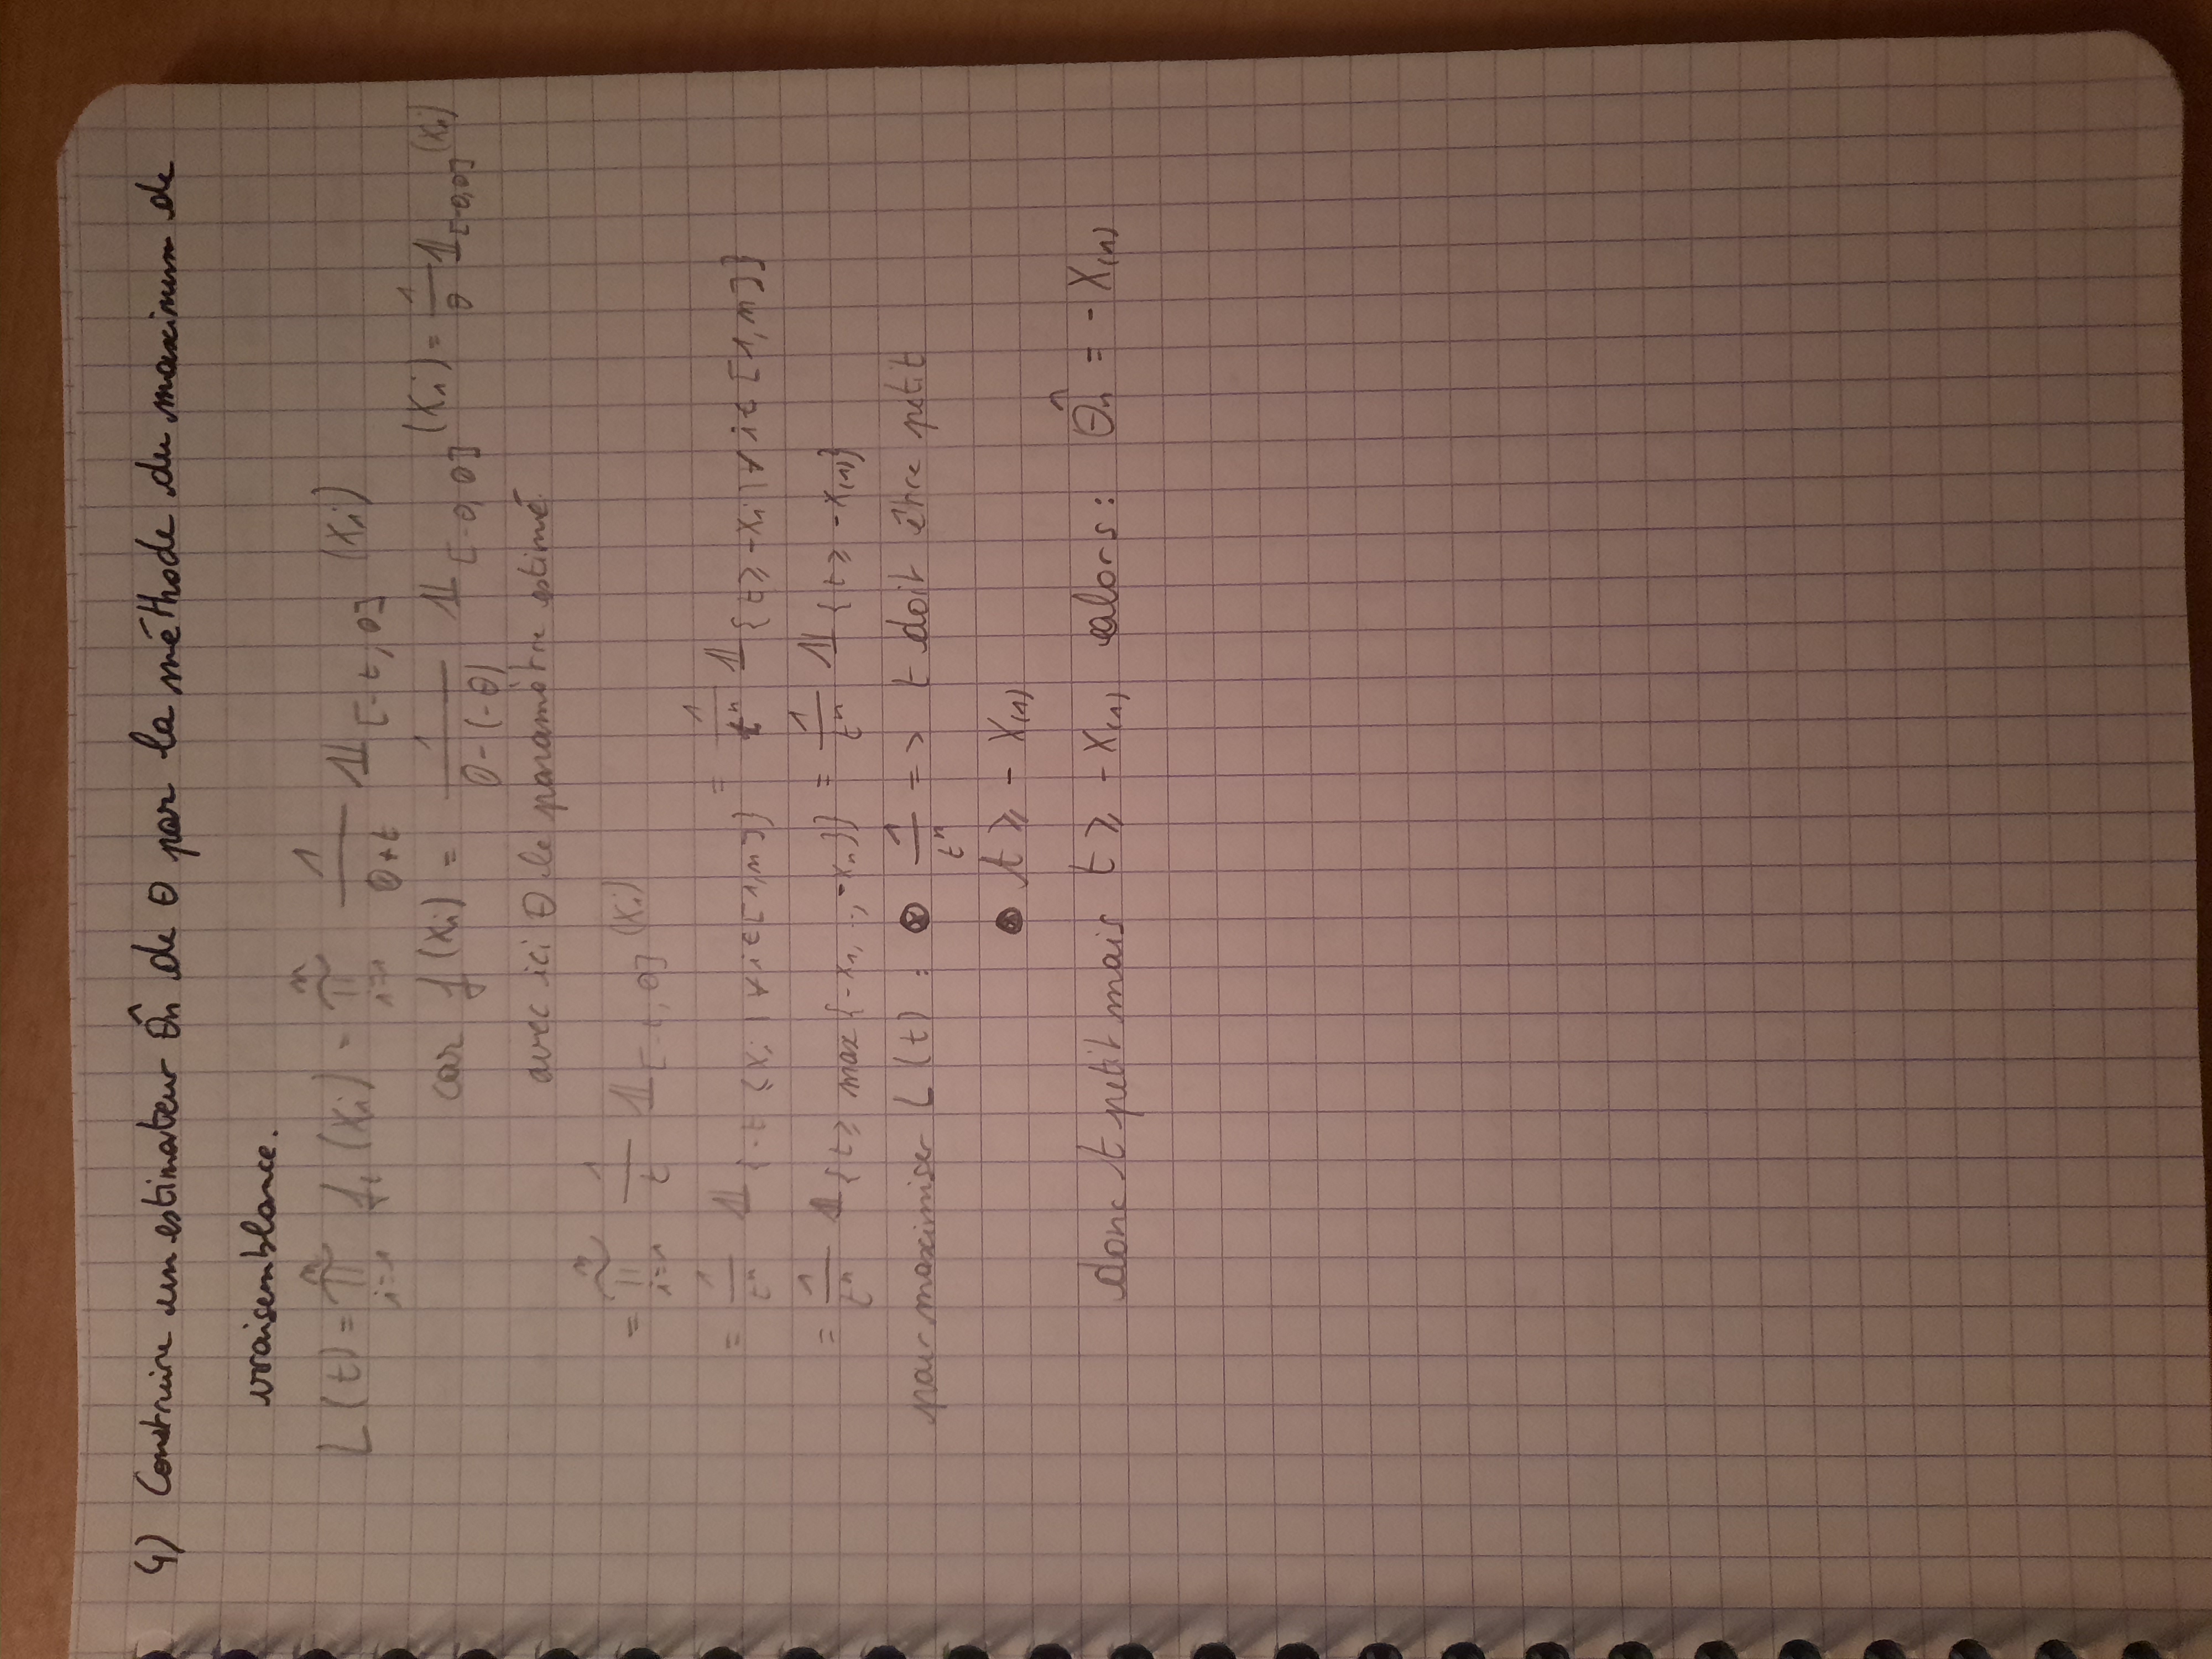 4) Construire un estimateur θ̂n de θ par la méthode du maximum de
vraisemblance.
L(t) = ∏_{i=1}^{n} f_t(Xi) = ∏_{i=1}^{n} 1/(0+t) 𝟙_{[-t,0]}(Xi)
car f(Xi) = 1/(0-(-θ)) 𝟙_{[-θ,0]}(Xi) = 1/θ 𝟙_{[-θ,0]}(Xi)
avec ici θ le paramètre estimé
= ∏_{i=1}^{n} 1/t 𝟙_{[-t,0]}(Xi)
= 1/t^n 𝟙_{{-t ⩽ Xi | ∀i ∈ [1,n]}} = 1/t^n 𝟙_{{t ⩾ -Xi | ∀i ∈ [1,n]}}
= 1/t^n 𝟙_{{t ⩾ max{-X1, ..., -Xn}}} = 1/t^n 𝟙_{{t ⩾ -X(1)}}
pour maximiser L(t) : • 1/t^n => t doit être petit
• t ⩾ - X(1)
donc t petit mais t ⩾ - X(1) alors : θ̂n = - X(1)